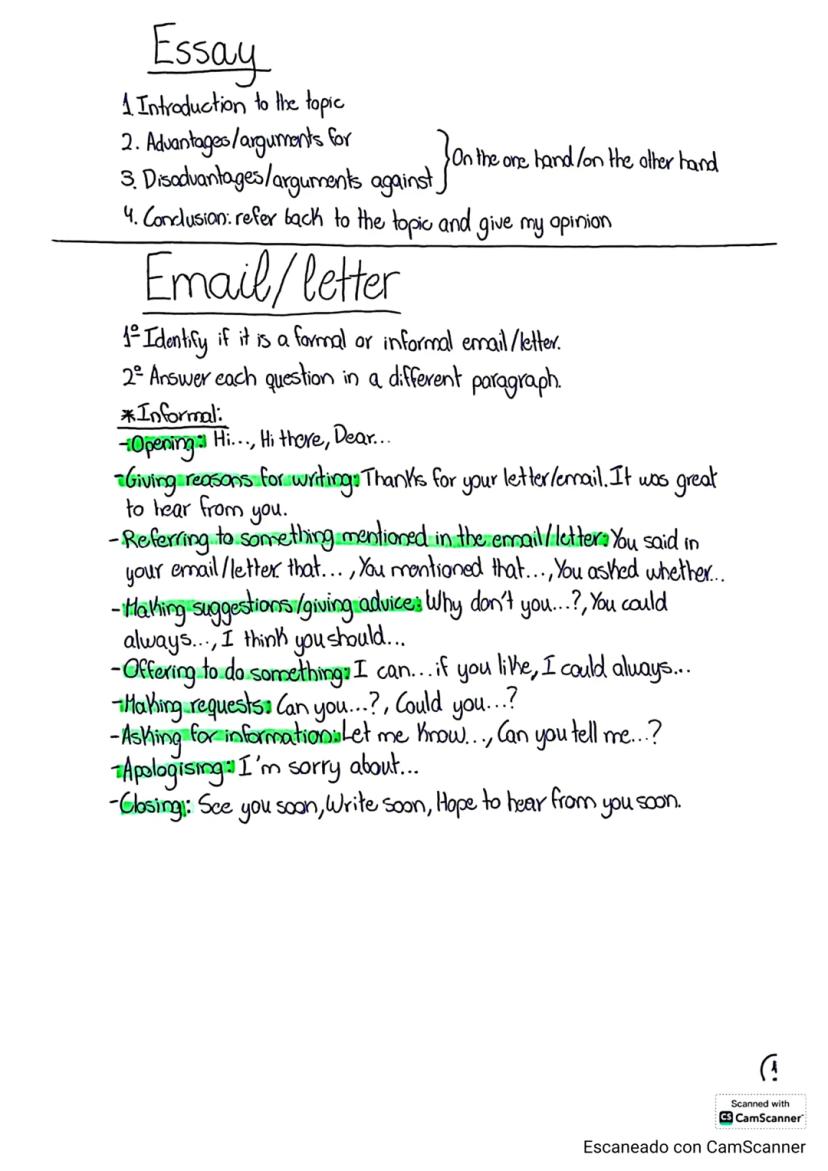 Essay
1 Introduction to the topic
2. Advantages/arguments for
3. Disadvantages/arguments against
On the one hand/on the other hand
4. Conclusion: refer back to the topic and give my opinion
Email/letter
1º Identify if it is a formal or informal email/letter.
2º Answer each question in a different paragraph.
*Informal:
-Opening: Hi..., Hi there, Dear...
-Giving reasons for writing: Thanks for your letter/email. It was great
to hear from you.
-Referring to something mentioned in the email/letter: You said in
your email/letter that..., You mentioned that..., You asked whether...
-Making suggestions/giving advice: Why don't you...?, You could
always..., I think you should...
-Offering to do something: I can...if you like, I could always...
-Making requests: Can you...?, Could you...?
-Asking for information: Let me know..., Can you tell me...?
-Apologising: I'm sorry about...
-Closing: See you soon, Write soon, Hope to hear from you soon.
Scanned with
CS CamScanner
Escaneado con CamScanner